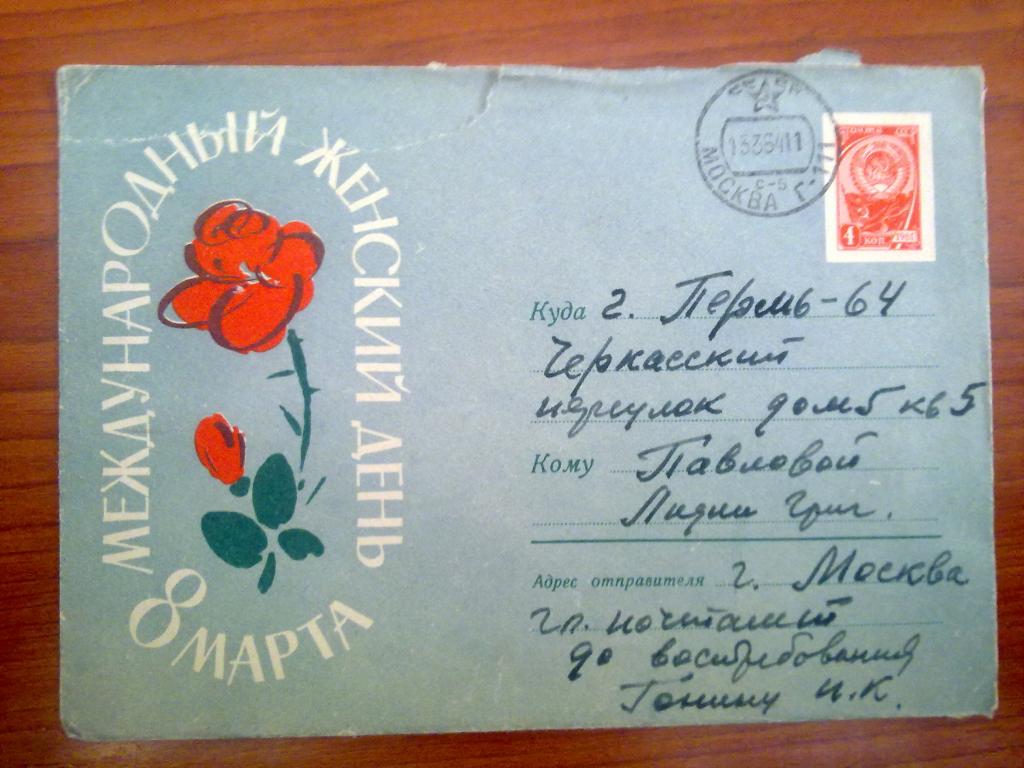 МЕЖДУНАРОДНЫЙ ЖЕНСКИЙ ДЕНЬ
8 МАРТА
МОСКВА Г-111
с-5
ПОЧТА СССР
4 КОП 1961
Куда г. Пермь-64
Черкасский
переулок дом 5 кв 5
Кому Павловой
Лидии Григ.
Адрес отправителя г. Москва
гл. почтамт
до востребования
Гонину И.К.